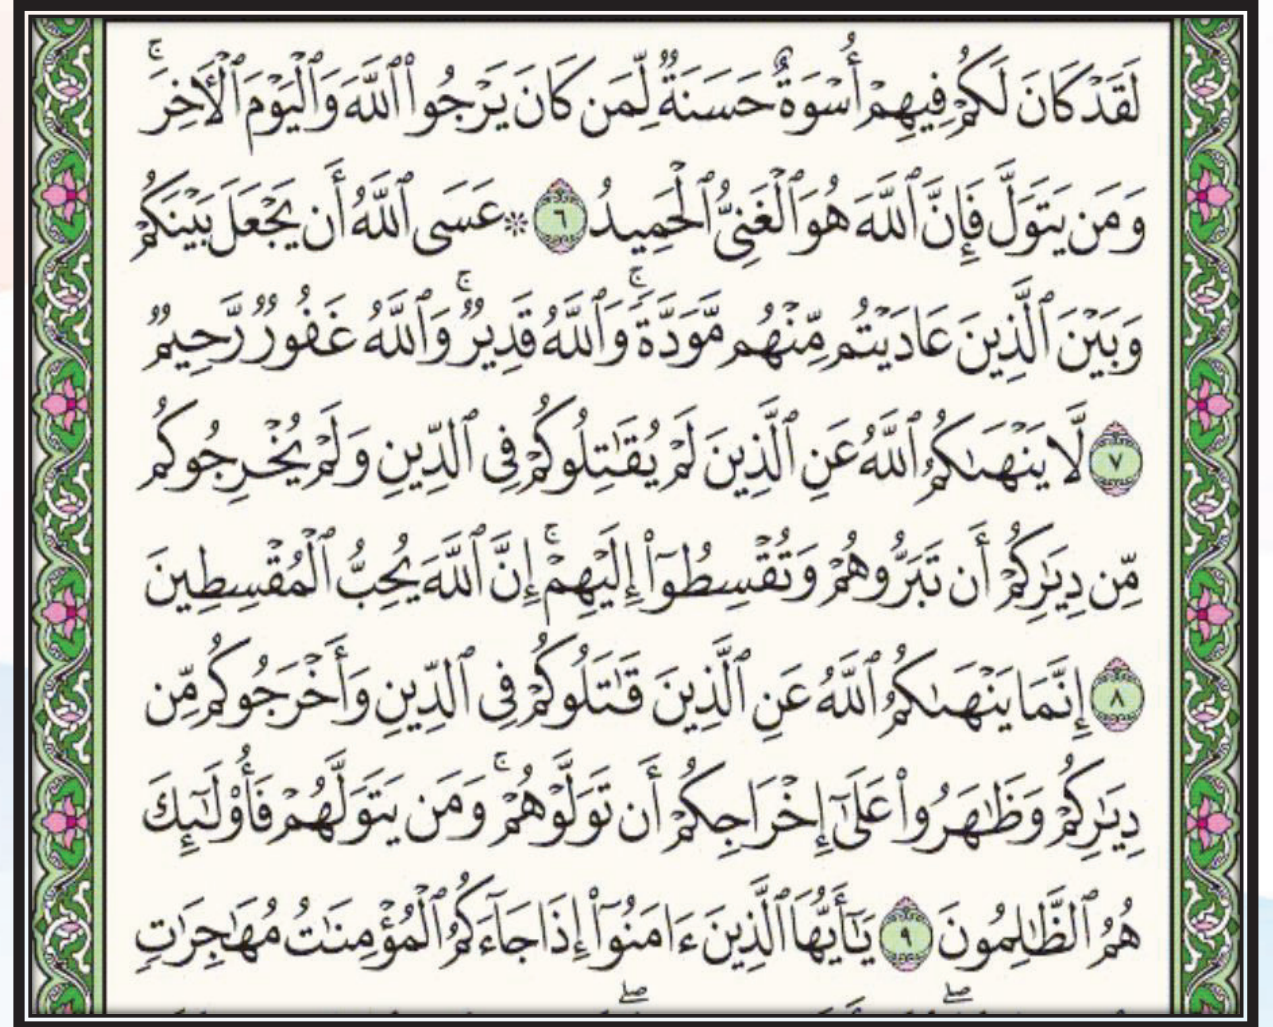 لَقَدْ كَانَ لَكُمْ فِيهِمْ أُسْوَةٌ حَسَنَةٌ لِّمَن كَانَ يَرْجُوا۟ ٱللَّهَ وَٱلْيَوْمَ ٱلْـَٔاخِرَ ۚ
وَمَن يَتَوَلَّ فَإِنَّ ٱللَّهَ هُوَ ٱلْغَنِىُّ ٱلْحَمِيدُ ٦ * عَسَى ٱللَّهُ أَن يَجْعَلَ بَيْنَكُمْ
وَبَيْنَ ٱلَّذِينَ عَادَيْتُم مِّنْهُم مَّوَدَّةً ۚ وَٱللَّهُ قَدِيرٌ ۚ وَٱللَّهُ غَفُورٌ رَّحِيمٌ
٧ لَّا يَنْهَىٰكُمُ ٱللَّهُ عَنِ ٱلَّذِينَ لَمْ يُقَـٰتِلُوكُمْ فِى ٱلدِّينِ وَلَمْ يُخْرِجُوكُم
مِّن دِيَـٰرِكُمْ أَن تَبَرُّوهُمْ وَتُقْسِطُوٓا۟ إِلَيْهِمْ ۚ إِنَّ ٱللَّهَ يُحِبُّ ٱلْمُقْسِطِينَ
٨ إِنَّمَا يَنْهَىٰكُمُ ٱللَّهُ عَنِ ٱلَّذِينَ قَـٰتَلُوكُمْ فِى ٱلدِّينِ وَأَخْرَجُوكُم مِّن
دِيَـٰرِكُمْ وَظَـٰهَرُوا۟ عَلَىٰٓ إِخْرَاجِكُمْ أَن تَوَلَّوْهُمْ ۚ وَمَن يَتَوَلَّهُمْ فَأُو۟لَـٰٓئِكَ
هُمُ ٱلظَّـٰلِمُونَ ٩ يَـٰٓأَيُّهَا ٱلَّذِينَ ءَامَنُوٓا۟ إِذَا جَآءَكُمُ ٱلْمُؤْمِنَـٰتُ مُهَـٰجِرَٰتٍ